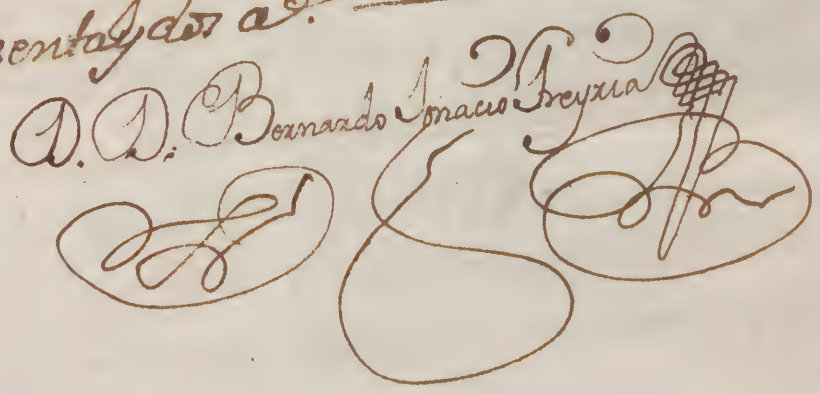 sentaydos a.s
D. D. Bernardo Ignacio Freyria